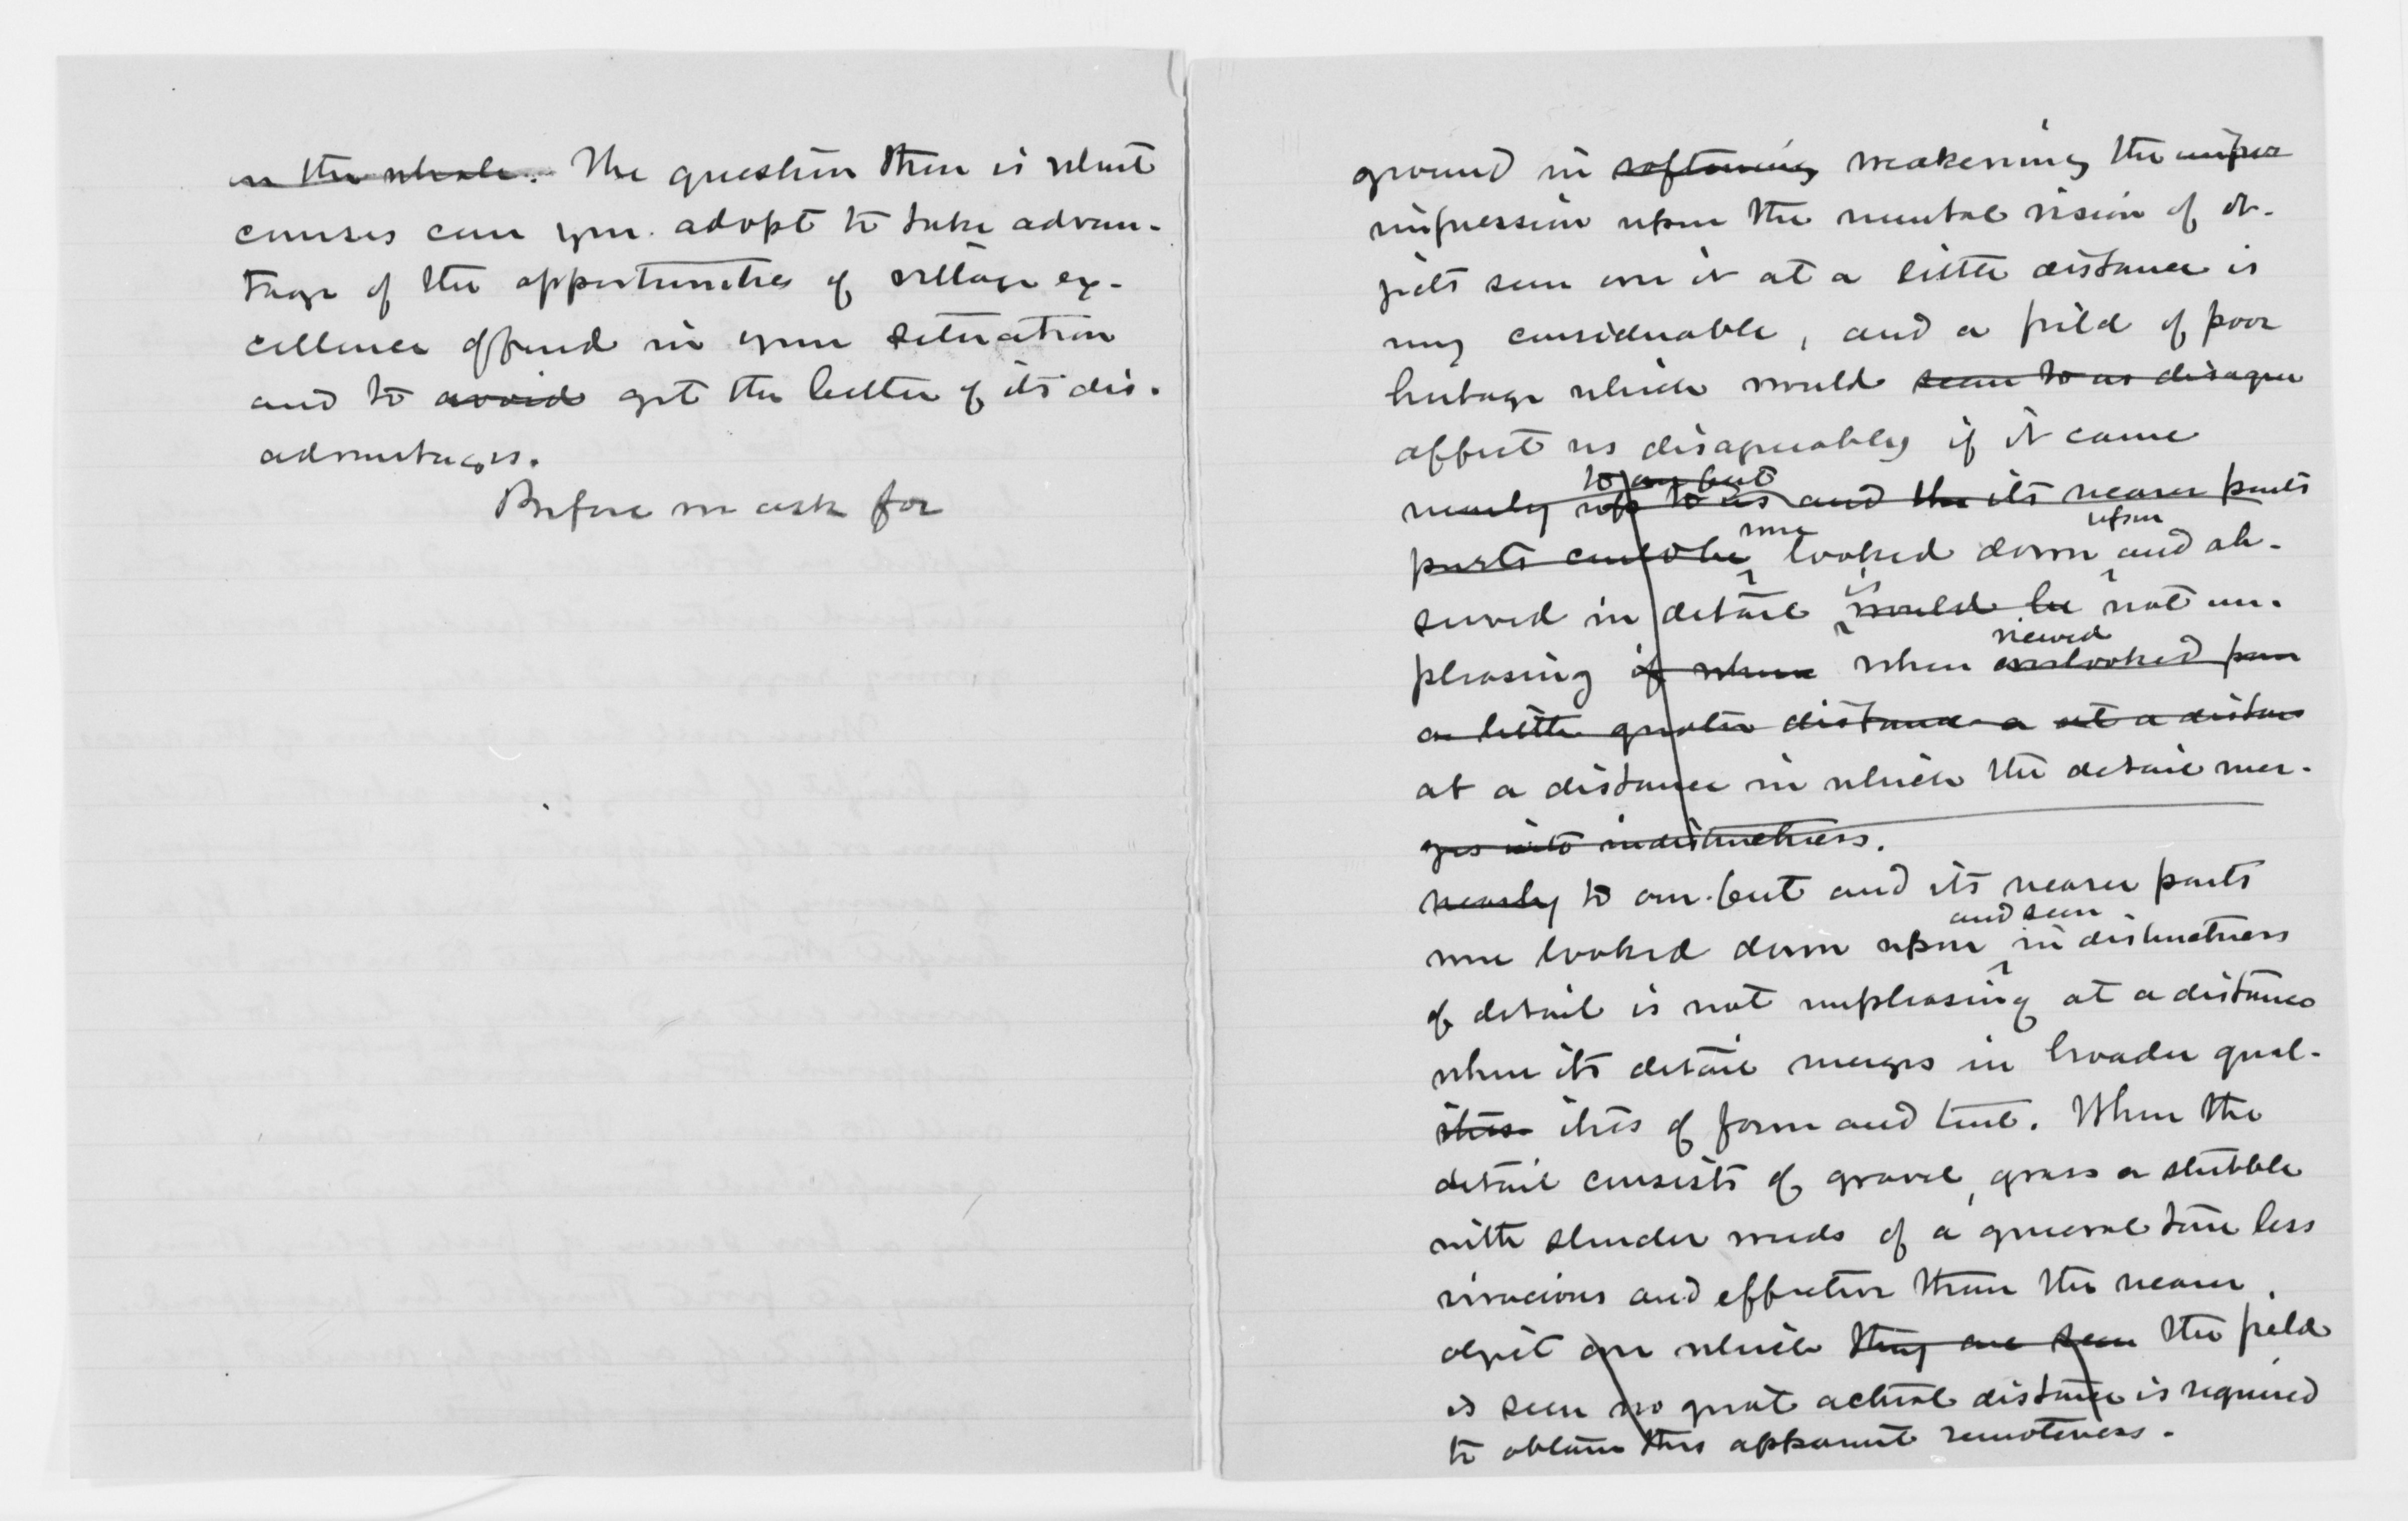 on the whole. The question then is what
courses can you adopt to take advan-
tage of the opportunities of village ex-
cellence offered in your situation
and to avoid get the better of its dis-
advantages.
Before we ask for
ground in softening weakening the impres
impression upon the mental vision of ob-
jects seen over it at a little distance is
very considerable, and a field of poor
herbage which would seem to us disagree
affect us disagreeably if it came
to our feet
nearly up to us and the its nearer parts
were upon
parts could be looked down and ob-
is
served in detail would be not un-
viewed
pleasing if when when overlooked from
a little greater distance a at a distance
at a distance in which the detail mer-
ges into indistinctness.
nearly to our feet and its nearer parts
and seen
were looked down upon in distinctness
of detail is not unpleasing at a distance
when its detail merges in broader qual-
ities ities of form and tint. When the
detail consists of gravel, grass or stubble
with slender weeds of a general tone less
vivacious and effective than the nearer
object over which they are seen the field
is seen no great actual distance is required
to obtain this apparent remoteness.